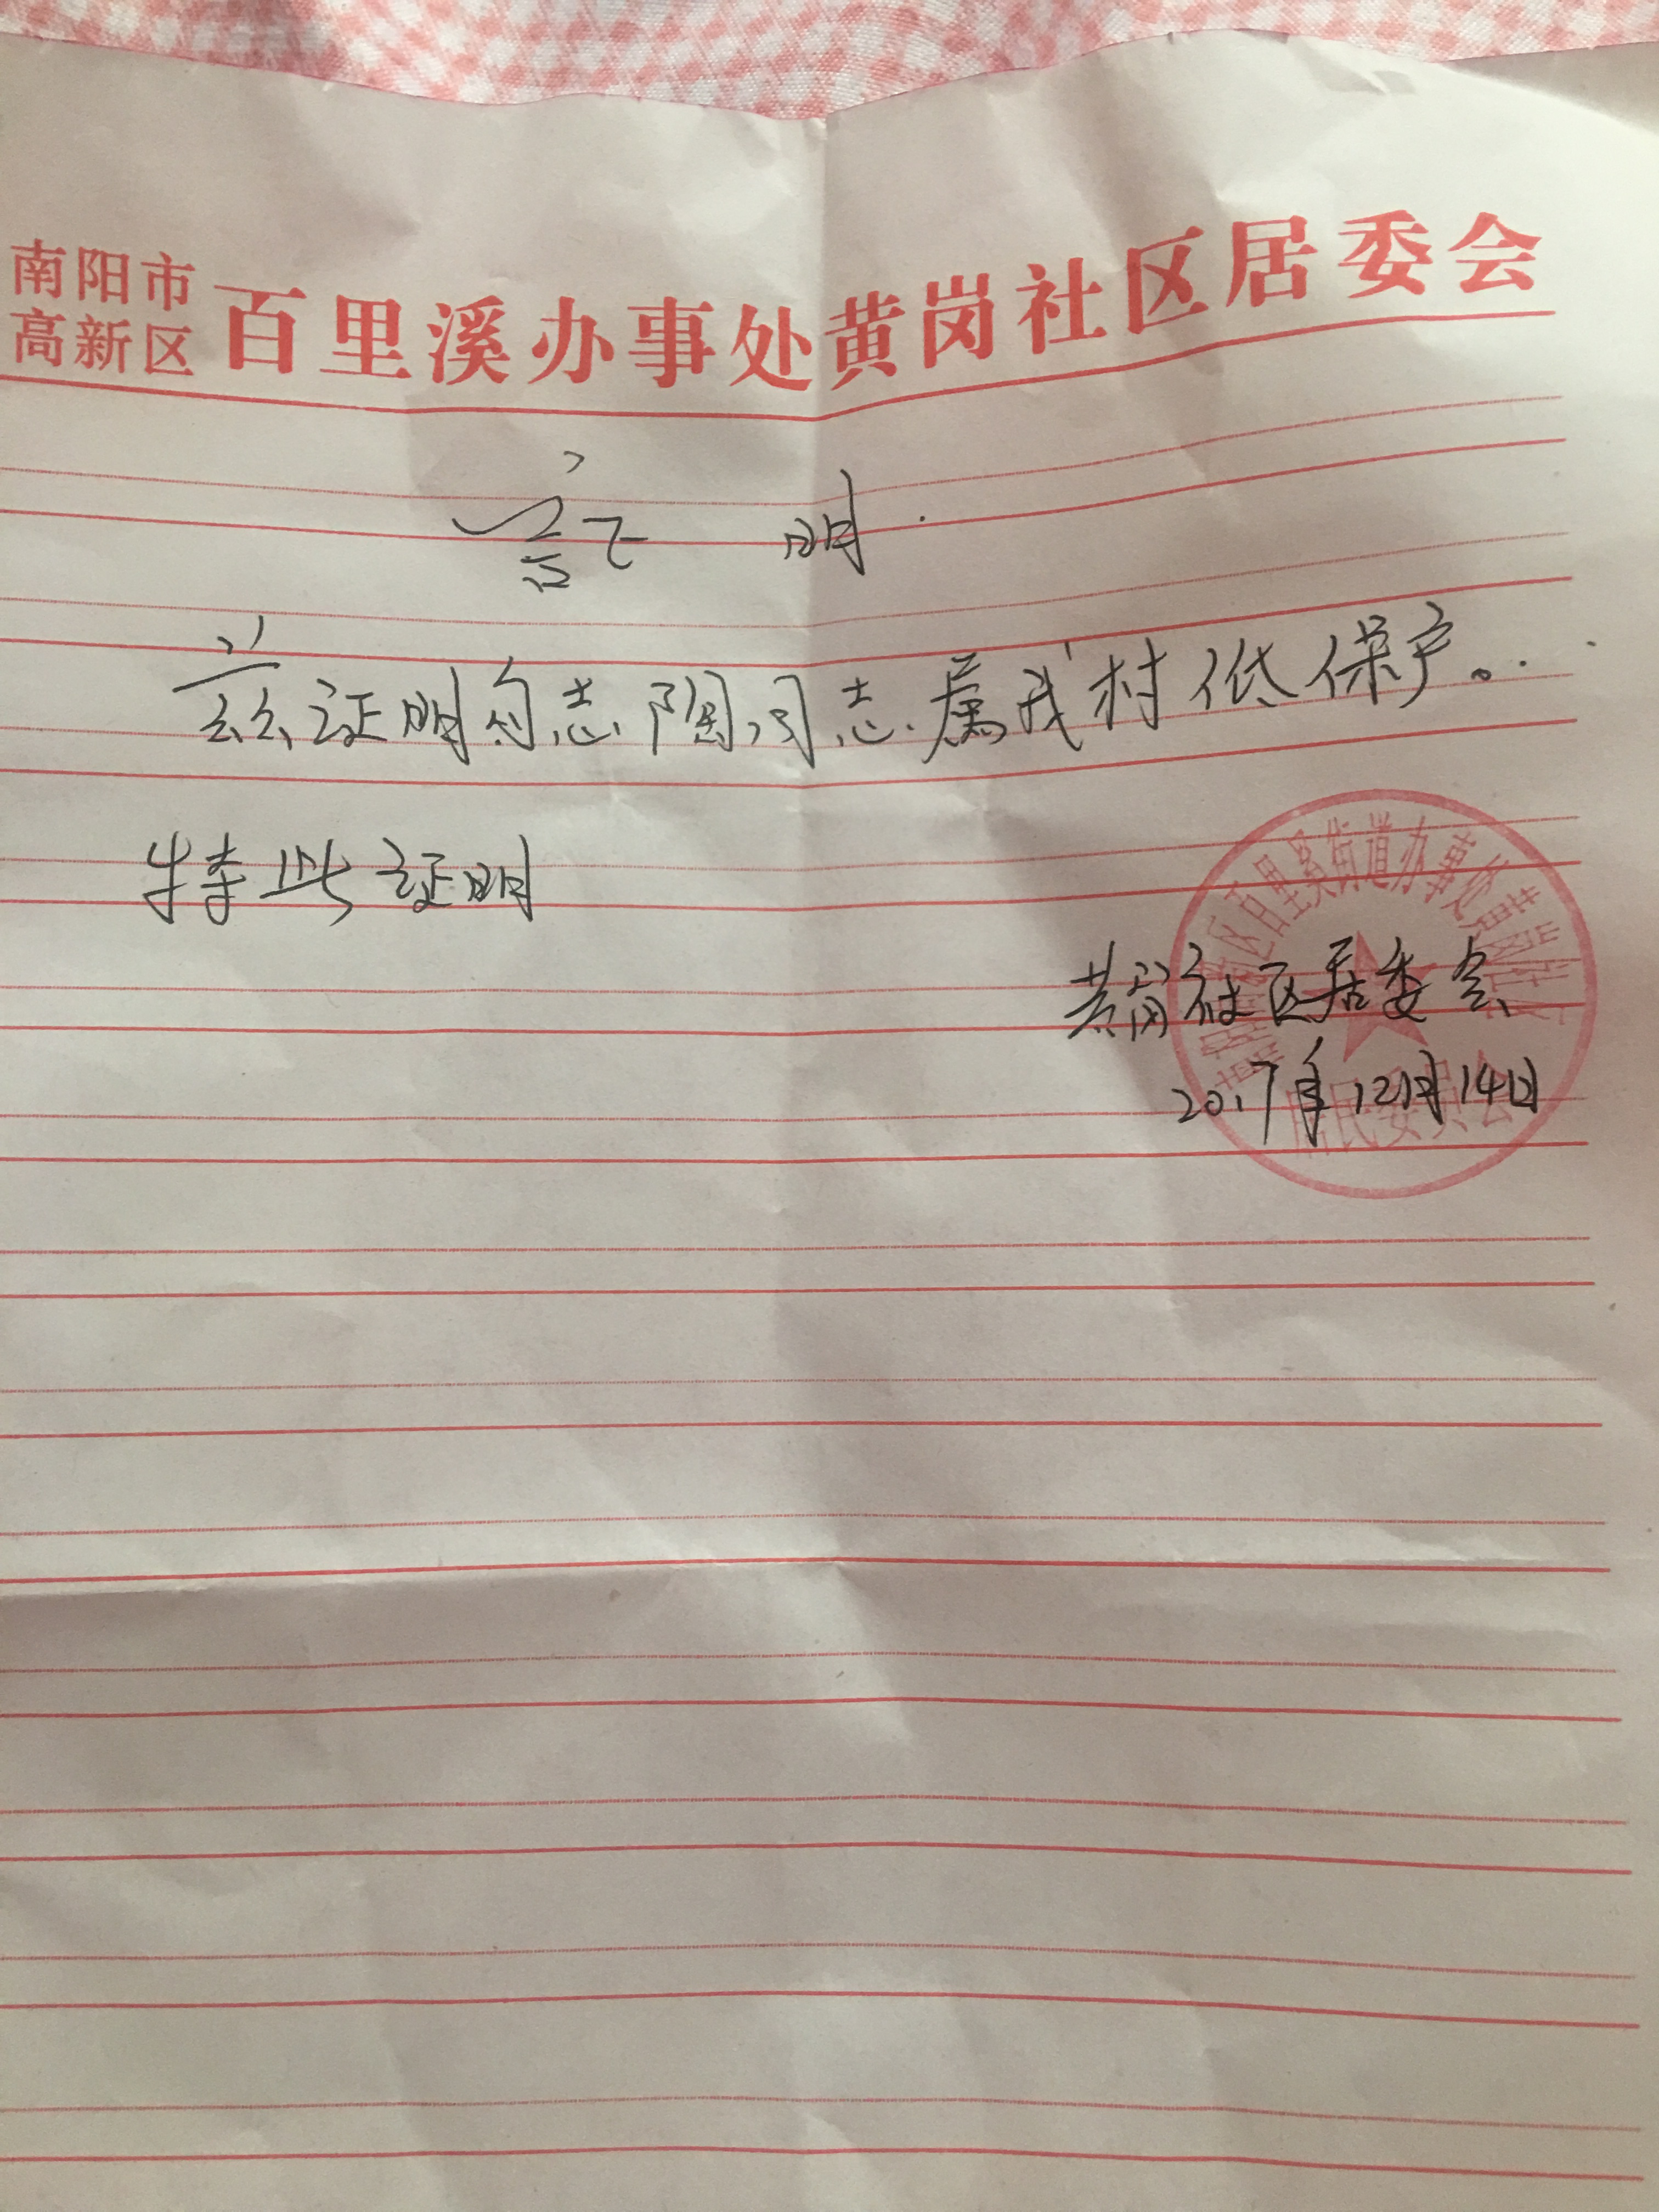 南阳市
高新区 百里溪办事处黄岗社区居委会
证 明
兹证明勾志陶同志属我村低保户。
特此证明
黄岗社区居委会
2017年12月14日
区百里奚街道办事处黄岗社区
居民委员会